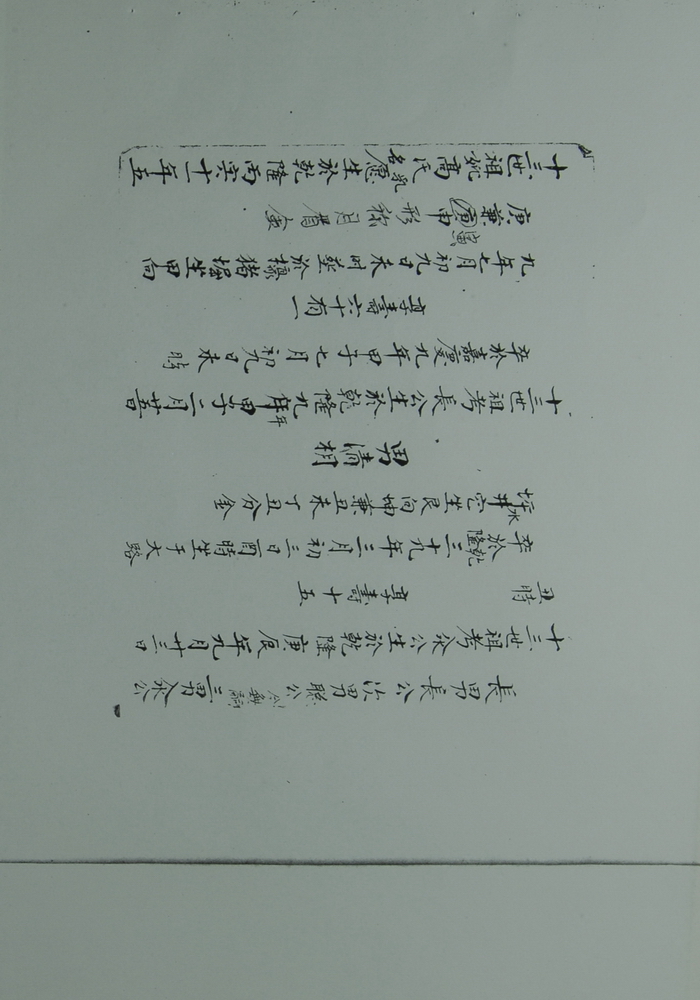 長男長公次男聯公無嗣三男永公
十三世祖考永公生於乾隆庚辰年九月廿三日
丑時 享壽十五
卒於乾隆三十九年三月初三日酉時坐于大路
坪水井坐艮向坤兼丑未丁丑分金
男清相
十三世祖考長公生於乾隆九年甲子二月廿五日
卒於嘉慶九年甲子七月初九日未時
享壽六十有一
九年七月初九日未时塟於猪堀坐甲向
庚兼寅申形月金
十三世祖妣高氏乳名愿生於乾隆丙寅十一年五